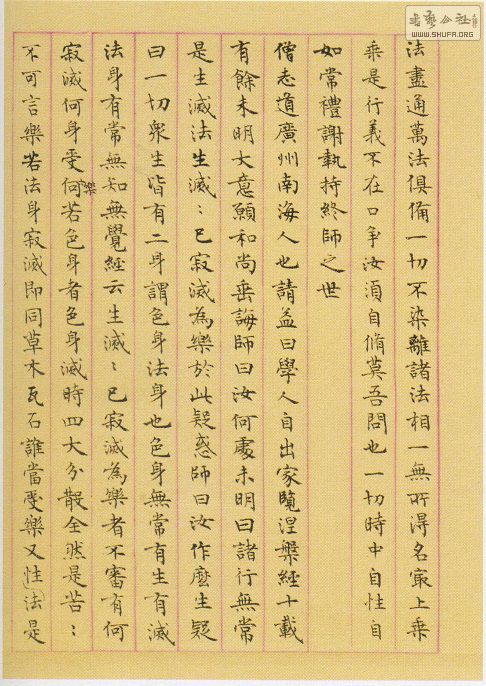 法盡通萬法俱備一切不染離諸法相一無所得名最上乘
乘是行義不在口爭汝須自脩莫吾問也一切時中自性自
如常禮謝執持終師之世
僧志道廣州南海人也請益曰學人自出家覽涅槃經十載
有餘未明大意願和尚垂誨師曰汝何處未明曰諸行無常
是生滅法生滅〻已寂滅為樂於此疑惑師曰汝作麼生疑
曰一切眾生皆有二身謂色身法身也色身無常有生有滅
法身有常無知無覺經云生滅〻已寂滅為樂者不審有何
寂滅何身受何樂若色身者色身滅時四大分散全然是苦〻
不可言樂若法身寂滅即同草木瓦石誰當受樂又性法是
WWW.SHUFA.ORG